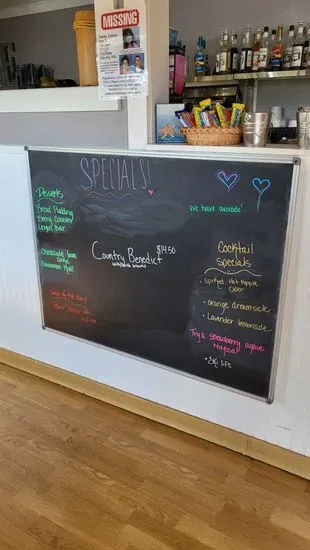 MISSING
SPECIALS!
Desserts
Bread Pudding
Berry Cobbler
Chocolate lava
cake
Cinnamon Roll
Soup of the day
Country Benedict $14.50
we have avocado!
Cocktail
Specials
• Spiked Hot Apple
Cider
• Orange dreamsicle
• Lavender lemonade
Try a strawberry agave
Mimosa
• Ski lift